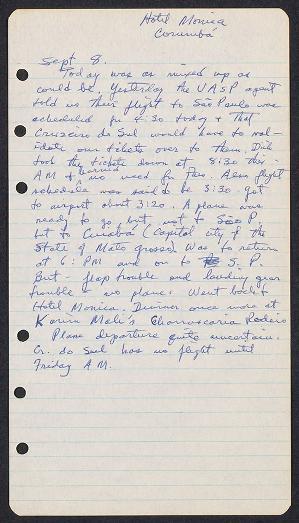 Hotel Monica
Corumbá
Sept 8.
Today was as mixed up as
could be. Yesterday the VASP agent
told us their flight to São Paulo was
scheduled for 4:30 today & that
Cruzeiro do Sul would have to val-
idate our tickets over to them. Dick
took the tickets down at 8:30 this
AM & learned no need for this. Also flight
schedule was said to be 3:30. Got
to airport about 3:20. A plane was
ready to go but not to São P.
but to Cuiabá (Capital city of the
State of Mato Grosso). Was to return
at 6: PM and on to S. P.
But - flap trouble and landing gear
trouble & no plane. Went back to
Hotel Monica. Dinner once more at
Churrascaria Rodeio
Plane departure quite uncertain.
Cr. do Sul has no flight until
Friday A.M.